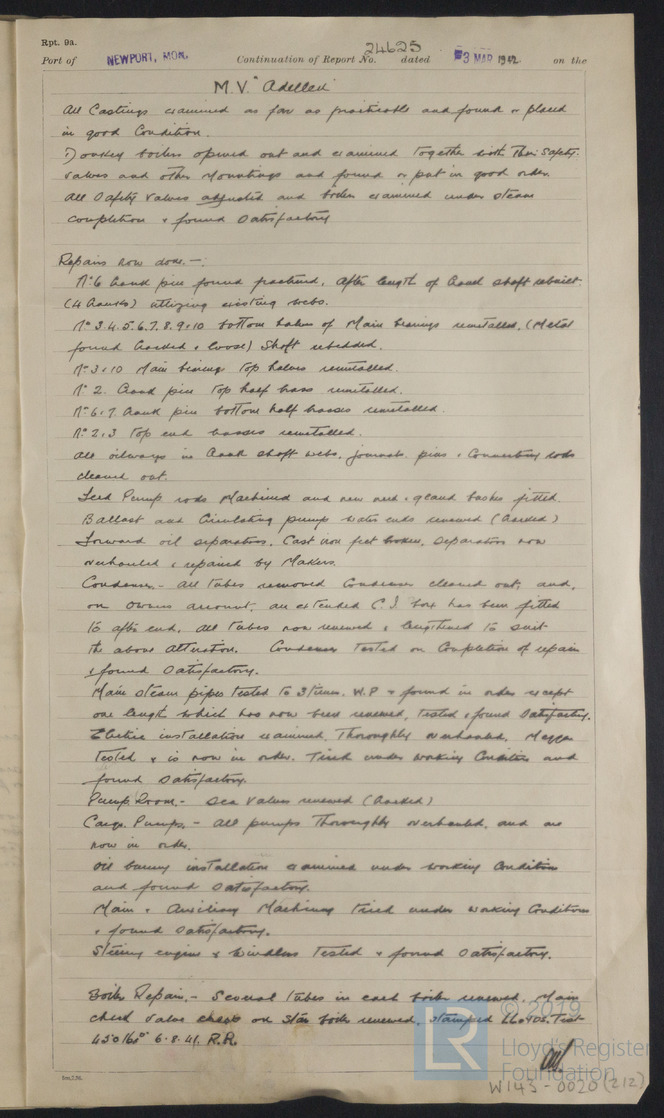 Rpt. 9a.
Port of NEWPORT, MON. Continuation of Report No. 24625 dated 3 MAR 1942 on the
M.V. "Adellen"
All Castings examined as far as practicable and found or placed
in good Condition.
Donkey boilers opened out and examined together with their Safety
valves and other Mountings and found or put in good order.
All Safety Valves adjusted and boilers examined under steam
completion & found Satisfactory
Repairs now done:-
No 6 Crank pin found fractured. After length of Crank shaft rebuilt
(4 Cranks) utilizing existing webs.
Nos 3.4.5.6.7.8.9 & 10 bottom halves of Main bearings remetalled. (Metal
found Cracked & loose) Shaft rebedded.
Nos 3 & 10 Main bearings Top halves remetalled.
No 2. Crank pin Top half brass remetalled.
Nos 6 & 7 Crank pin bottom half brasses remetalled.
Nos 2 & 3 Top end brasses remetalled.
All oilways in Crank shaft webs, journals, pins & Connecting rods
cleared out.
Feed Pump rods Machined and new neck & gland bushes fitted.
Ballast and Circulating pump water ends renewed (Cracked)
Forward oil separators. Cast iron feet broken. Separators now
overhauled & repaired by Makers.
Condenser - All tubes removed Condenser cleaned out, and,
on owners account, an extended C.I. box has been fitted
to after end. All tubes now renewed & lengthened to suit
the above alteration. Condenser Tested on Completion of repairs
& found Satisfactory.
Main steam pipes tested to 3 times W.P & found in order except
one length which has now been renewed, Tested & found Satisfactory.
Electric installation examined, Thoroughly overhauled, Megger
Tested & is now in order. Tried under working Condition and
found Satisfactory.
Pump Room - Sea Valves renewed (Cracked)
Cargo Pumps - All pumps Thoroughly overhauled, and are
now in order.
Oil burning installation examined under working Condition
and found Satisfactory.
Main & Auxiliary Machinery tried under working Condition
& found Satisfactory.
Steering engine & Windlass Tested & found Satisfactory.
Boiler Repairs - Several Tubes in each boiler renewed. Main
check valve chest on Star boiler renewed, Stamped LLOYDS. Test
450 lbs 6.8.41. R.R.
© 2019
LR Lloyd's Register
Foundation
W143-0020 (212)